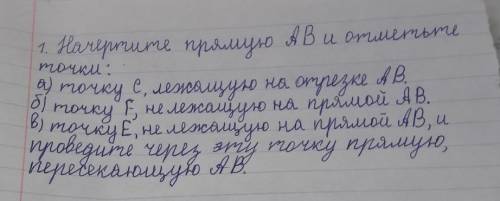 1. Начертите прямую АВ и отметьте
точки:
а) точку С, лежащую на отрезке АВ.
б) точку F, не лежащую на прямой АВ.
в) точку Е, не лежащую на прямой АВ, и
проведите через эту точку прямую,
пересекающую АВ.